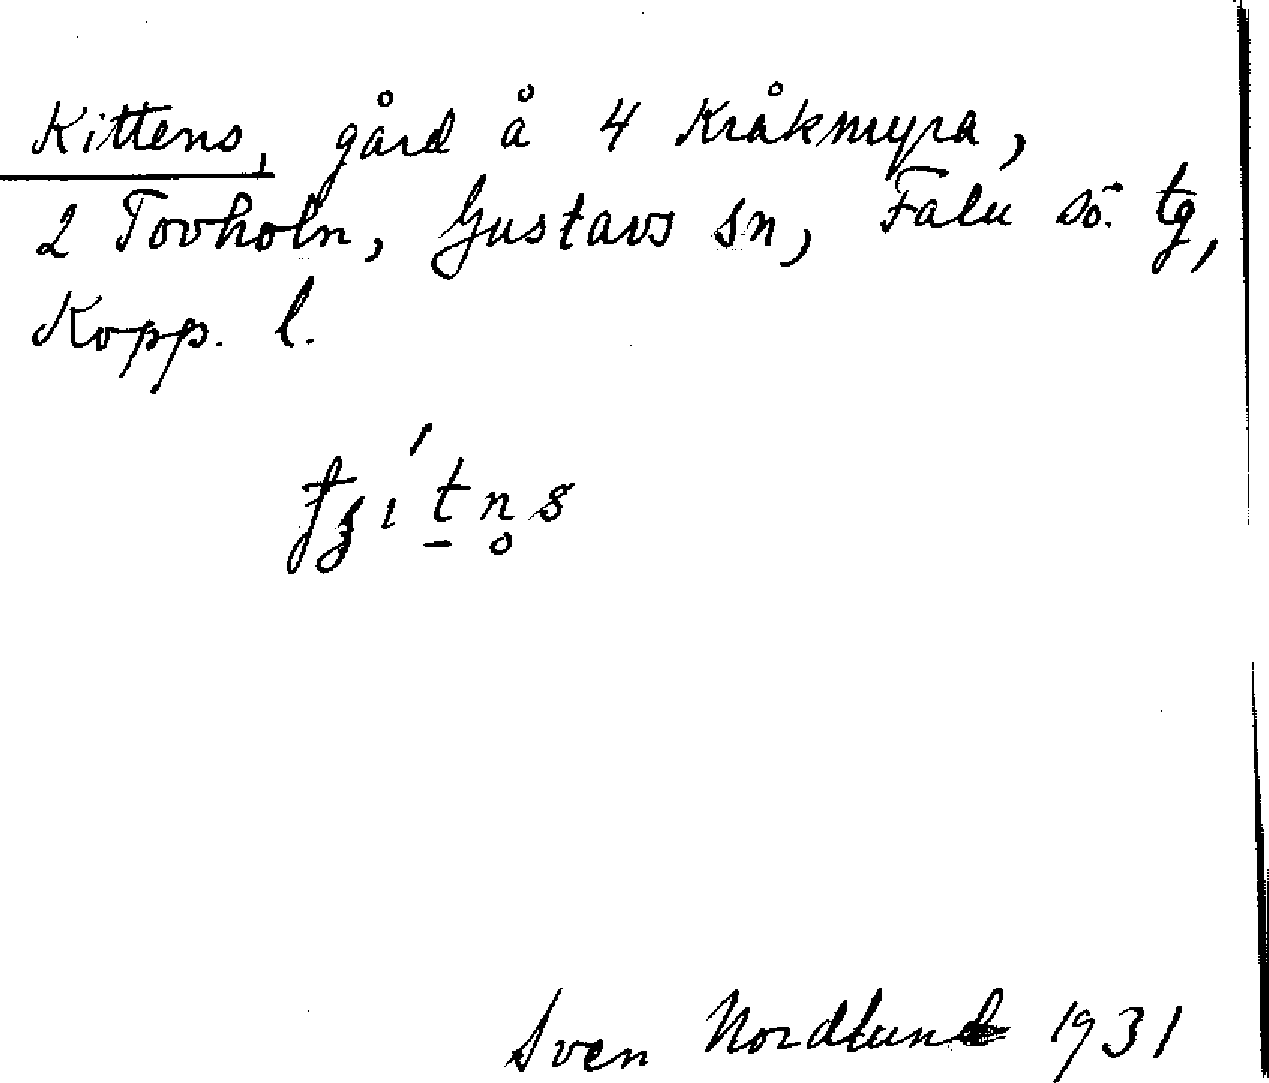 Kittens, gård å 4 Kråkmyra,
2 Tovholn, Gustavs sn, Falu sö. tg,
Kopp. l.
Sven Nordlund 1931